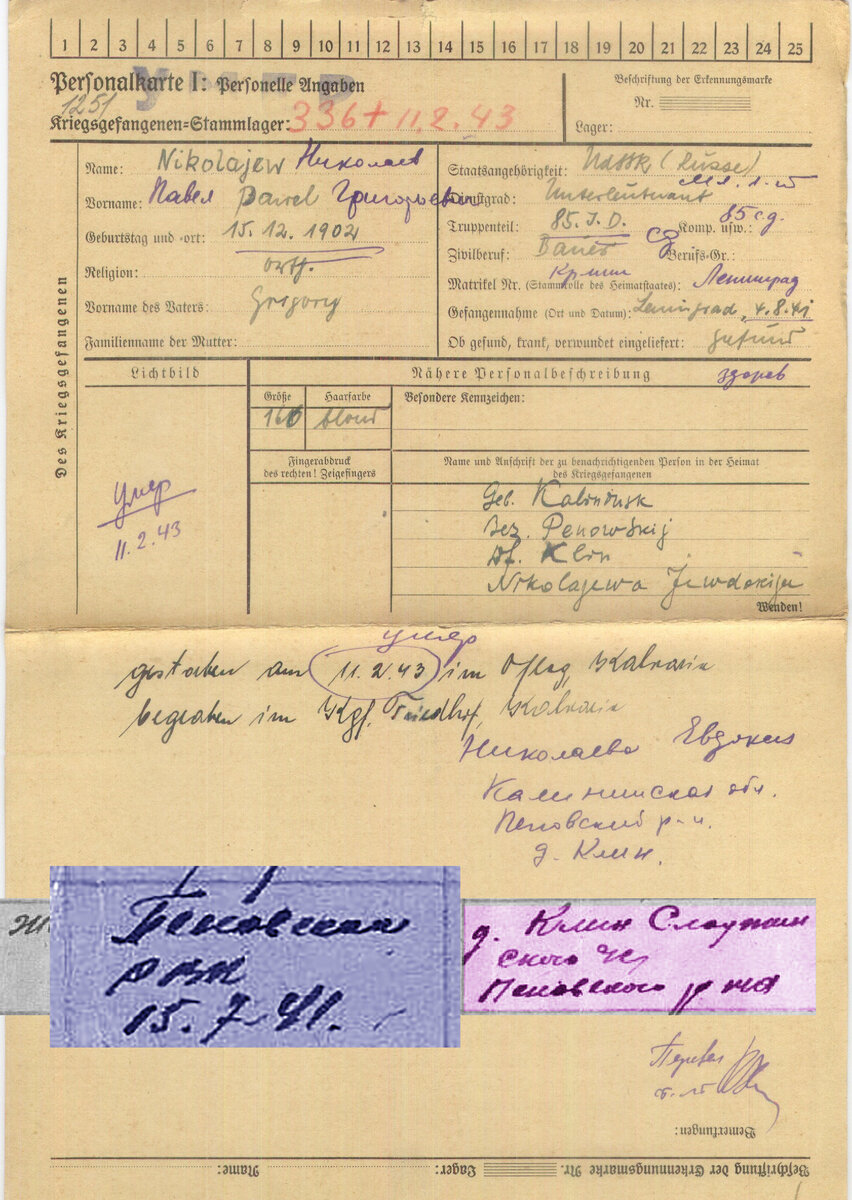 1 2 3 4 5 6 7 8 9 10 11 12 13 14 15 16 17 18 19 20 21 22 23 24 25
УМЕР
Personalkarte I: Personelle Angaben
1251
Kriegsgefangenen=Stammlager: 336 + 11.2.43
Beschriftung der Erkennungsmarke
Nr.
Lager:
Des Kriegsgefangenen
Name: Nikolajew Николаев
Vorname: Павел Pawel Григорьевич
Geburtstag und =ort: 15.12.1902
Religion: orth.
Vorname des Vaters: Grigorij
Familienname der Mutter:
Staatsangehörigkeit: UdSSR (Russe)
Dienstgrad: Unterleutnant мл. л-т
Truppenteil: 85. I.D. Komp. usw.: 85 сд.
Zivilberuf: Bauer Berufs-Gr.:
Matrikel Nr. (Stammrolle des Heimatstaates): Ленинград
Gefangennahme (Ort und Datum): Leningrad, 4.8.41
Ob gesund, krank, verwundet eingeliefert: gesund
Lichtbild
умер
11.2.43
Nähere Personalbeschreibung здоров
Größe Haarfarbe
166 blond
Besondere Kennzeichen:
Fingerabdruck
des rechten! Zeigefingers
Name und Anschrift der zu benachrichtigenden Person in der Heimat
des Kriegsgefangenen
Geb. Kalininsk
Bez. Penowskij
Df. Klin
Nikolajewa Jewdokija
Wenden!
умер
gestorben am 11.2.43 im Oflag, Kalvaria
begraben im Kgf. Friedhof, Kalvaria
Николаева Евдокия
Калининская обл.
Пеновский р-н.
д. Клин.
Пеновский
РВК
15.7.41.
д. Клин Слаутин
ского
Пеновского р-на
Перевел
Bemerkungen:
Beschriftung der Erkennungsmarke Nr. Lager: Name: